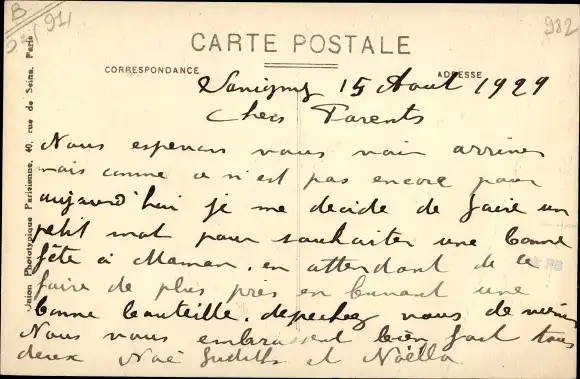 B
(91)
982
CARTE POSTALE
CORRESPONDANCE
ADRESSE
Savigny 15 Aout 1929
Chers Parents
Nous esperions vous voir arriver
mais comme ce n'est pas encore pour
aujourd'hui je me decide de faire un
petit mot pour souhaiter une bonne
fête à Maman. en attendant de le
faire de plus près en buvant une
bonne bouteille. depechez vous de venir
Nous vous embrassent bien fort tous
deux Noë Judith et Noëlla
Union Phototypique Parisienne, 40, rue de Seine, Paris